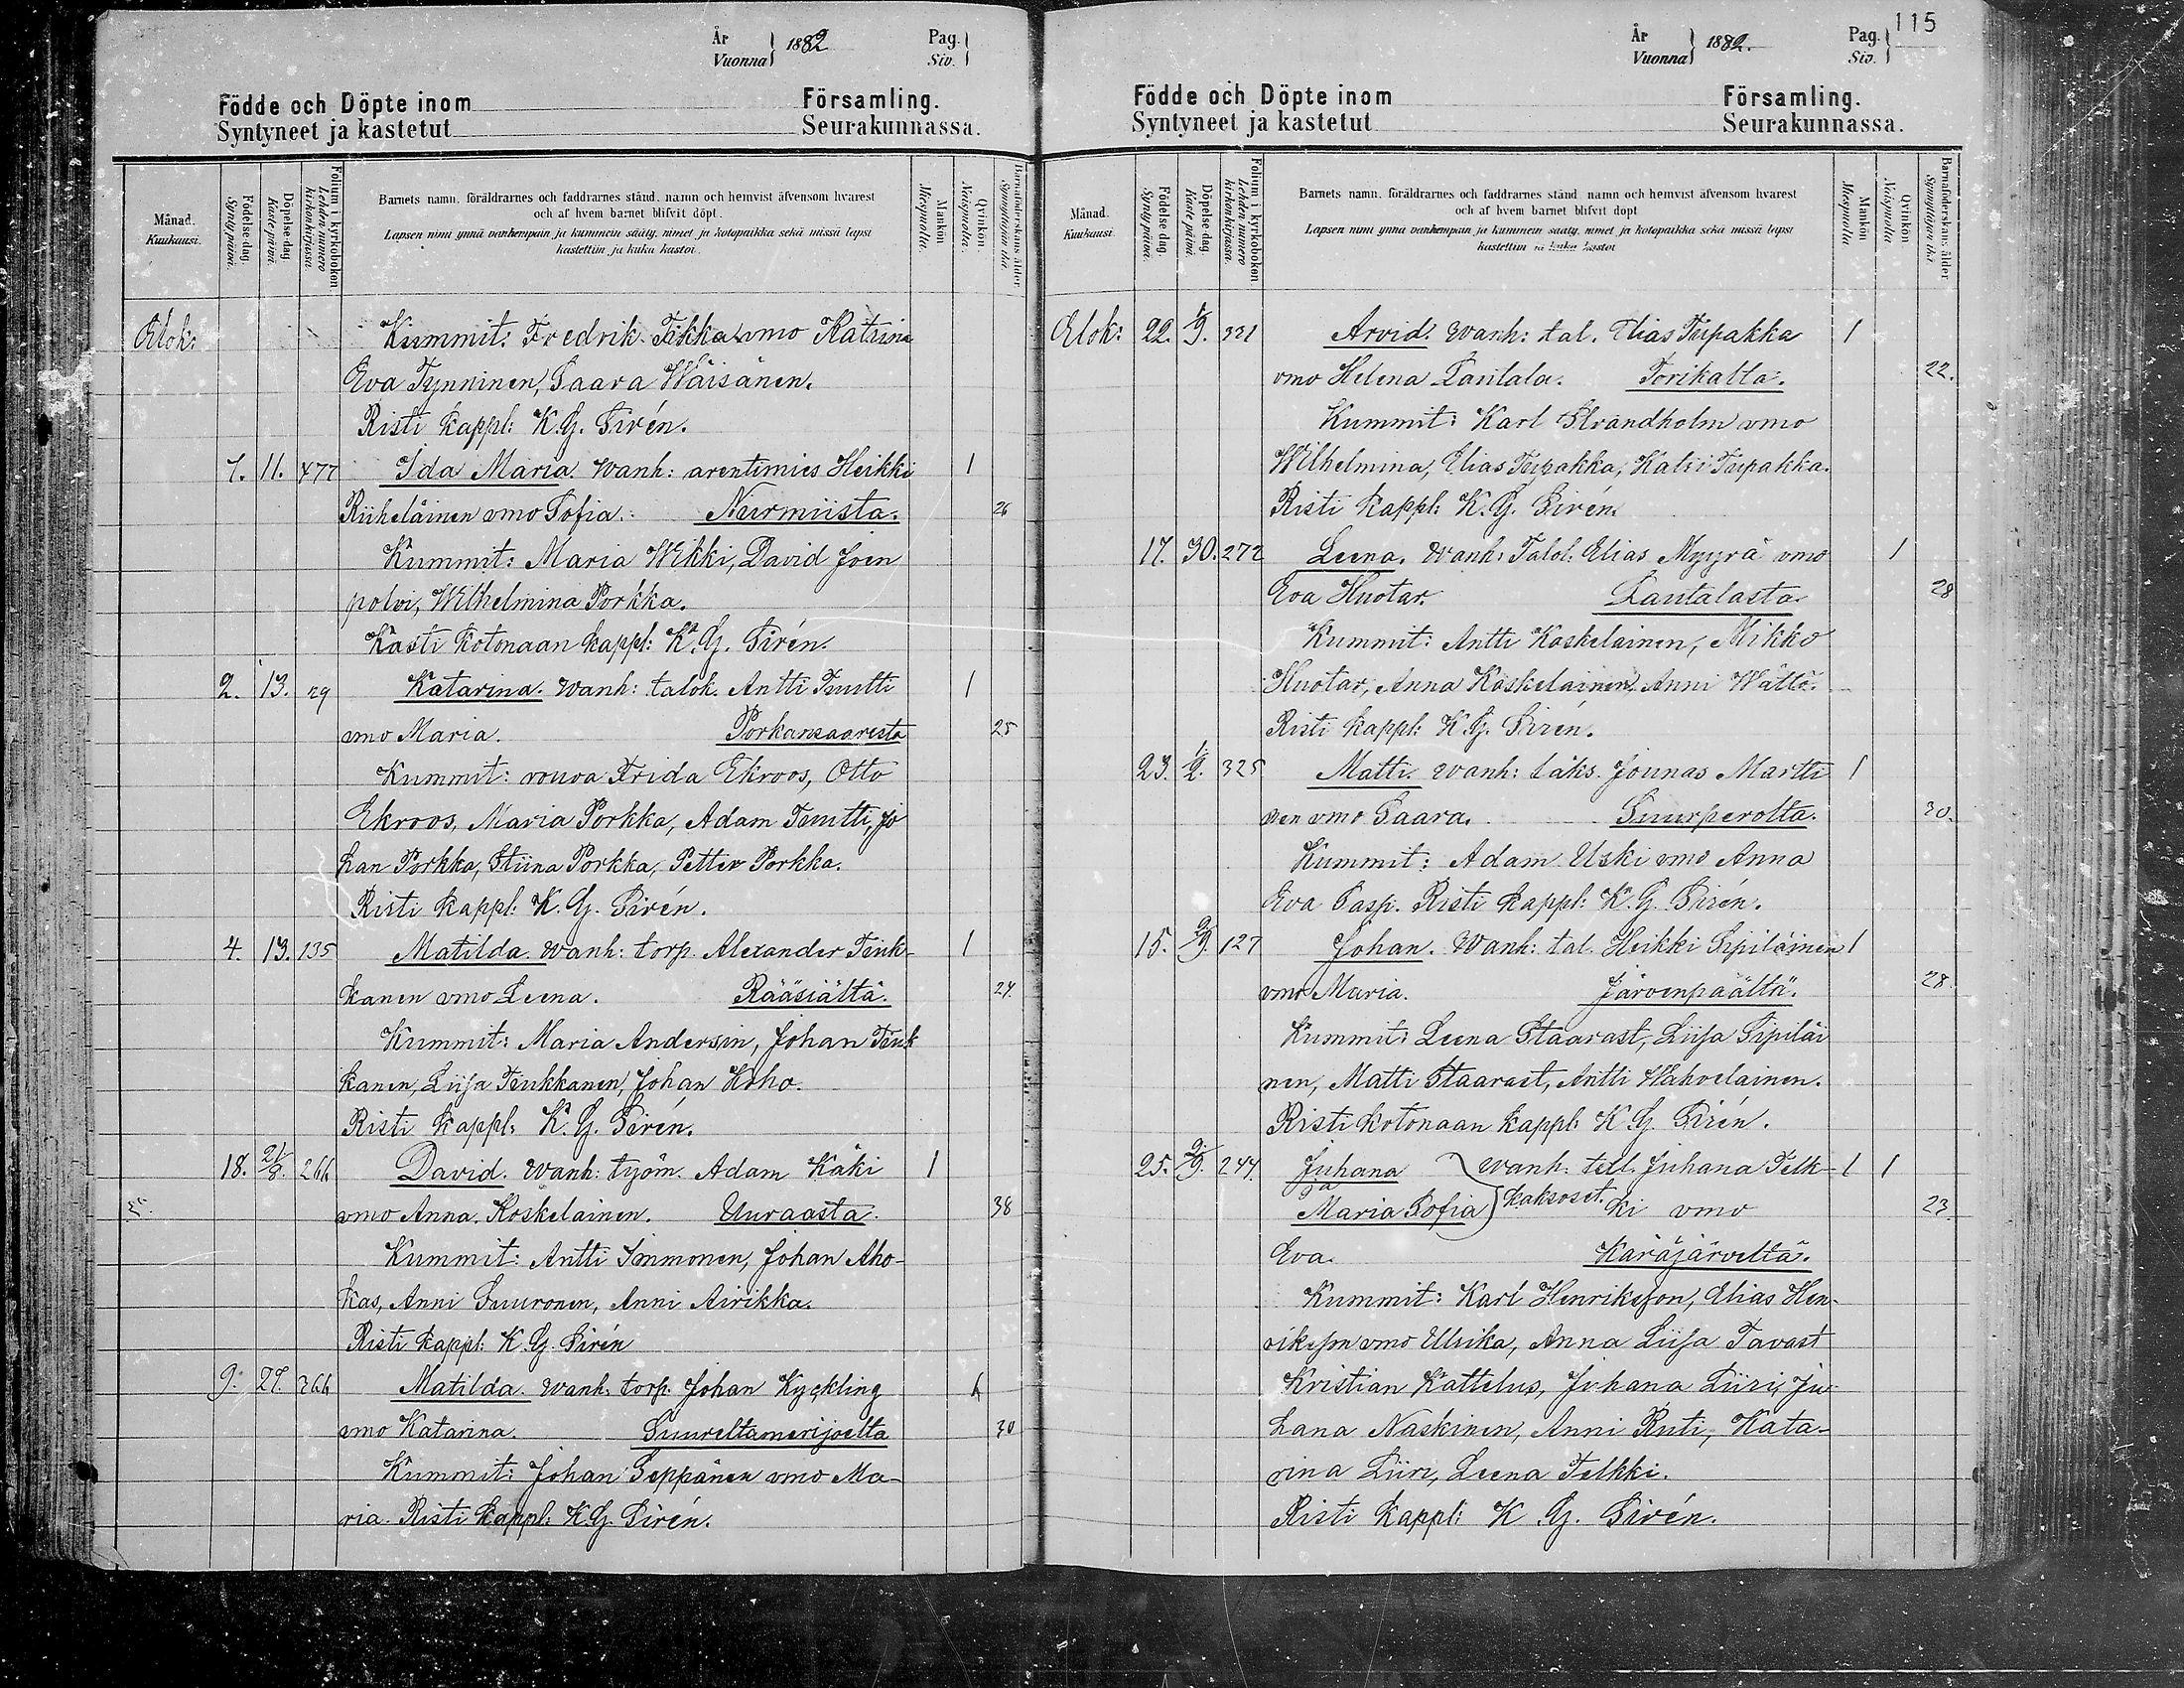 År
Vuonna
1882
Pag.
Siv.
Födde och Döpte inom Församling.
Syntyneet ja kastetut Seurakunnassa.
Månad.
Kuukausi.
Födelse dag.
Synty päivä.
Döpelse dag.
Kaste päivä.
Folium i kyrkoboken
Lehden numero kirkonkirjassa.
Barnets namn, föräldrarnes och faddrarnes stånd, namn och hemvist äfvensom hvarest
och af hvem barnet blifvit döpt.
Lapsen nimi ynnä vanhempain ja kummein sääty, nimet ja kotopaikka sekä missä lapsi
kastettiin ja kuka kastoi.
Mankön
Miespuolta.
Qvinkön.
Naispuolta.
Barnaföderskans ålder
Synnyttäjän ikä
Elok: Kummit: Fredrik Tikka vmo Katrina
Eva Tynninen, Saara Wäisänen.
Risti kappl: K. G. Sirén.
7. 11. 477 Ida Maria. Wanh: arentimies Heikki 1
Riiheläinen vmo Sofia. Nurmiista. 26
Kummit: Maria Wikki, David Joen
polvi, Wilhelmina Porkka.
Kasti kotonaan kappl: K. G. Sirén.
2. 13. 29 Katarina. Wanh: talok. Antti Teutti 1
vmo Maria. Porkansaaresta 25
Kummit: rouva Frida Ekroos, Otto
Ekroos, Maria Porkka, Adam Teutti, Jo
han Porkka, Stiina Porkka, Petter Porkka.
Risti kappl: K. G. Sirén.
4. 13. 135 Matilda. Wanh: torp. Alexander Teuk- 1
kanen vmo Leena. Rääsiältä. 24.
Kummit: Maria Andersin, Johan Teuk
kanen, Liisa Teukkanen, Johan Koho.
Risti kappl: K. G. Sirén.
18. 21/8. 266 David. Wanh: työm. Adam Käki 1
vmo Anna Koskelainen. Uuraasta. 38
Kummit: Antti Immonen, Johan Aho-
kas, Anni Suuronen, Anni Airikka.
Risti kappl: K. G. Sirén
9. 27. 366 Matilda. Wanh. torp. Johan Kyckling
vmo Katarina. Suureltamerijoelta 30
Kummit: Johan Seppänen vmo Ma-
ria. Risti kappl: K. G. Sirén.
115
År
Vuonna
1882.
Pag.
Siv.
Födde och Döpte inom Församling.
Syntyneet ja kastetut Seurakunnassa.
Månad.
Kuukausi
Födelse dag.
Synty päivä.
Döpelse dag.
Kaste päivä.
Folium i kyrkoboken
Lehden numero kirkonkirjassa.
Barnets namn, föräldrarnes och faddrarnes stånd, namn och hemvist äfvensom hvarest
och af hvem barnet blifvit döpt
Lapsen nimi ynnä vanhempain ja kummein sääty, nimet ja kotopaikka sekä missä lapsi
kastettiin ja kuka kastoi
Mankön
Miespuolta
Qvinkön.
Naispuolta
Barnaföderskans ålder
Synnyttäjän ikä
Elok: 22. 1/9. 321 Arvid. Wanh: tal. Elias Turpakka 1
vmo Helena Lautala. Torikalta. 22.
Kummit: Karl Strandholm vmo
Wilhelmina, Elias Turpakka, Katri Turpakka.
Risti kappl: K. G. Sirén.
17. 30. 272 Leena. Wanh: Talol. Elias Myyrä vmo 1
Eva Huotar. Lautalasta. 28
Kummit: Antti Koskelainen, Mikko
Huotar, Anna Koskelainen, Anni Wättö.
Risti kappl: K. G. Sirén.
23. 325 Matti. Wanh: laks. Jounas Martti 1
nen vmo Saara. Suurperolta. 30.
Kummit: Adam Uski vmo Anna
Eva Pasp. Risti kappl: K. G. Sirén.
15. 127 Johan. Wanh: tal. Heikki Sipiläinen 1
vmo Maria. Järvenpäältä. 28
Kummit: Leena Staarast, Liisa Sipiläi
nen, Matti Staarast, Antti Wahvelainen.
Risti kotonaan kappl: K. G. Sirén.
25. 244. Juhana Wanh: tal. Juhana Telk- 1 1
ja
Maria Sofia kaksoset. ki vmo 23.
Eva. Käräjärveltä.
Kummit: Karl Henriksson, Elias Hen-
riksson vmo Ulrika, Anna Liisa Tavast
Kristian Kattelus, Juhana Liiri, Ju-
hana Naskinen, Anni Ruti, Kata-
rina Liiri, Leena Telkki.
Risti kappl: K. G. Sirén.